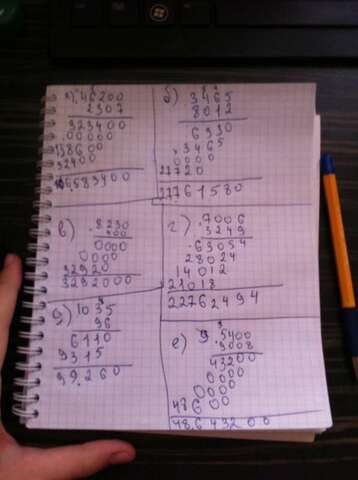 а) 46200
2307
323400
00000
138600
92400
106583400
б) 3465
8012
6930
3465
0000
27720
27761580
в) 8230
400
0000
0000
32920
3292000
г) 7006
3249
63054
28024
14012
21018
22762494
д) 1035
96
6110
9315
99260
е) 5400
9008
43200
0000
0000
48600
48643200